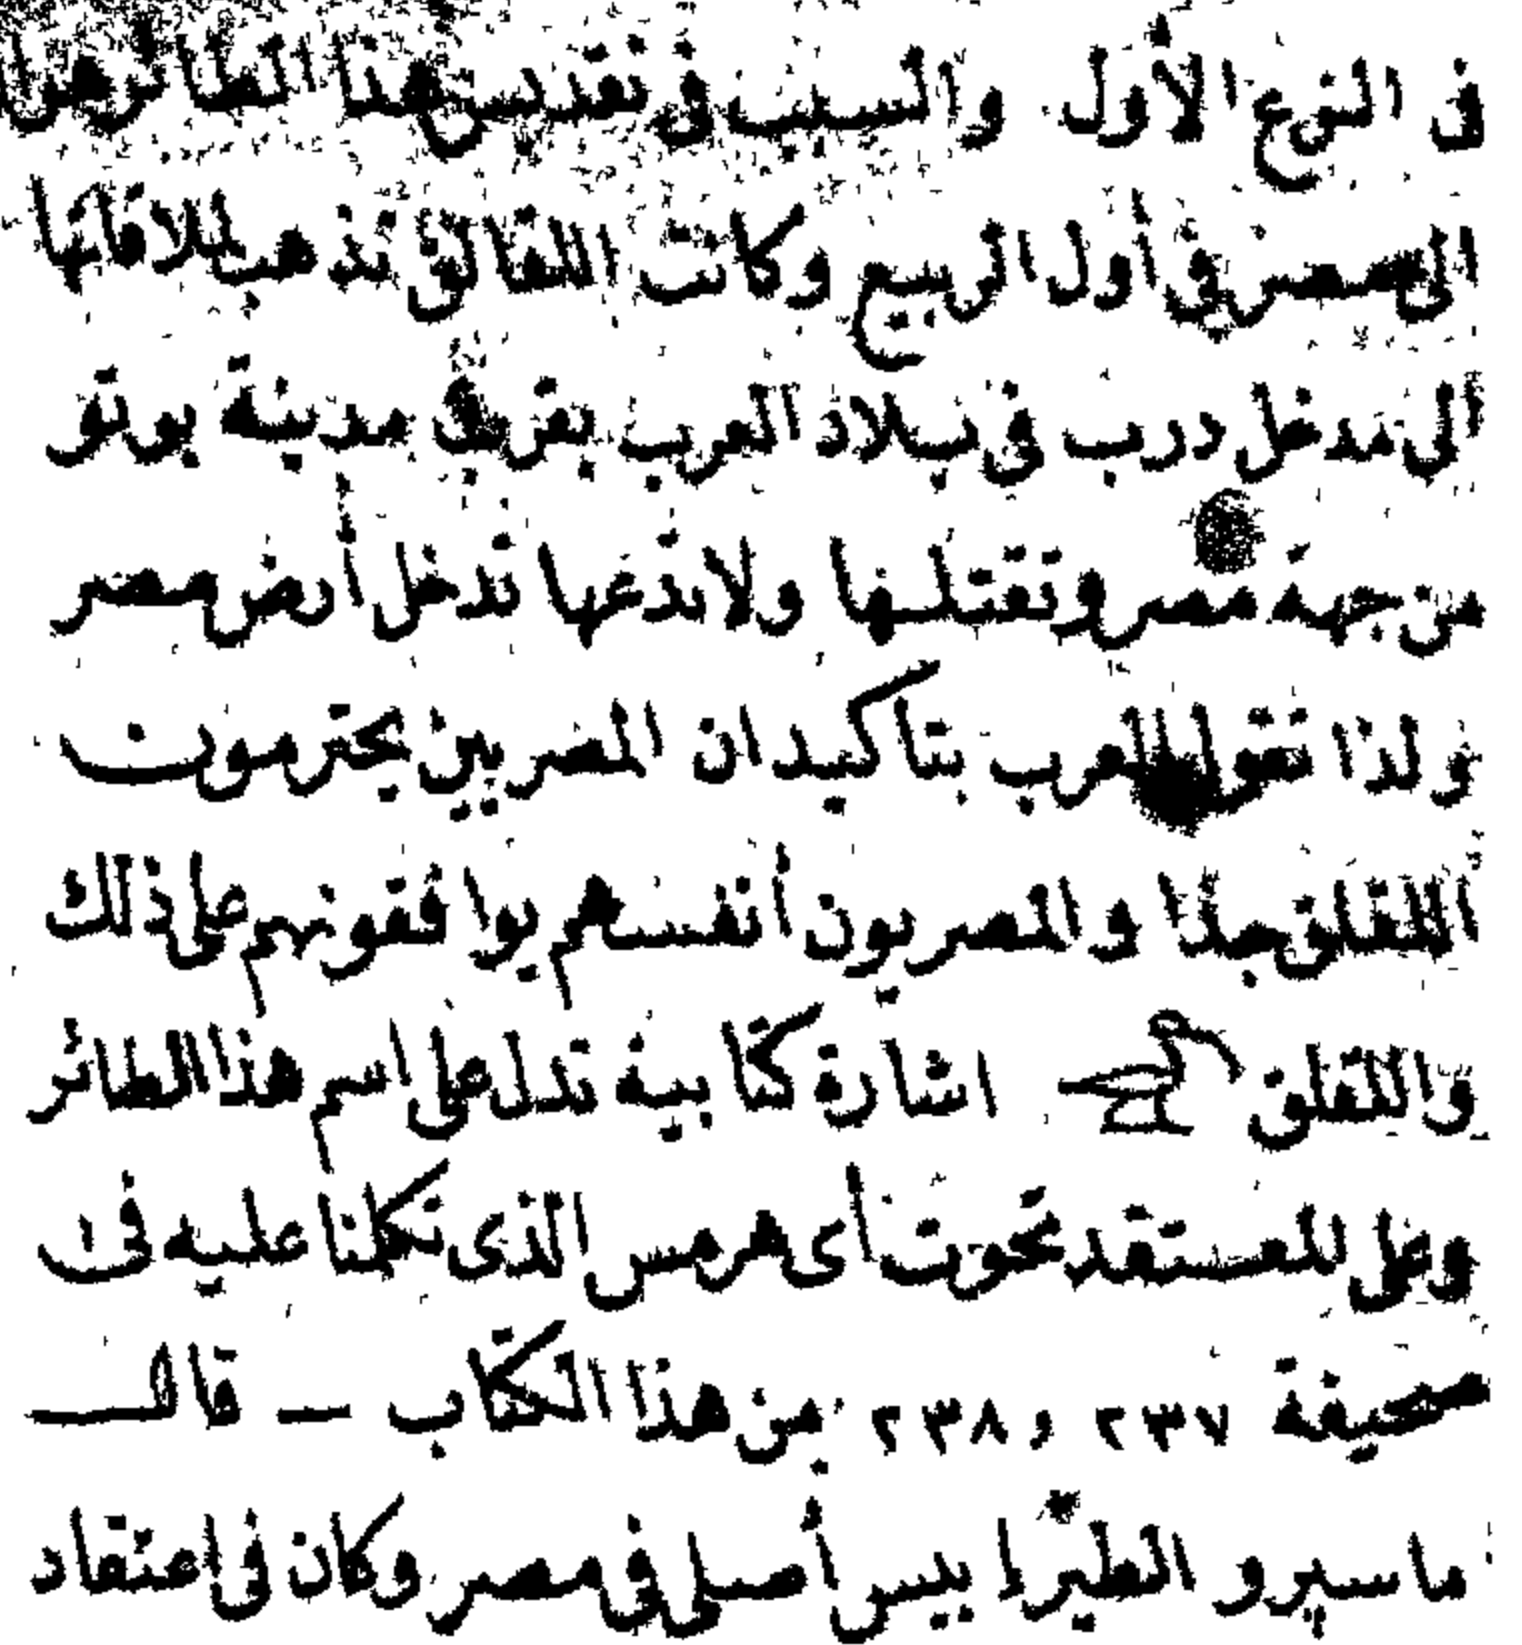 فى النوع الأول والسبب فى تقديس هذا الطائر هو
الى مصر فى أول الربيع وكانت اللقالق تذهب لملاقاتها
الى مدخل درب فى بلاد العرب بقرب مدينة بوتو
من جهة مصر وتقتلها ولا تدعها تدخل أرض مصر
ولذا تقول العرب بتأكيد ان المصريين يحترمون
اللقلق جدا والمصريون أنفسهم يوافقونهم على ذلك
واللقلق اشارة كتابية تدل على اسم هذا الطائر
وعلى المعتقد تحوت أى هرمس الذى تكلمنا عليه فى
صحيفة ٢٣٧ و ٢٣٨ من هذا الكتاب — قال
ماسپرو الطير ابيس أصلى فى مصر وكان فى اعتقاد